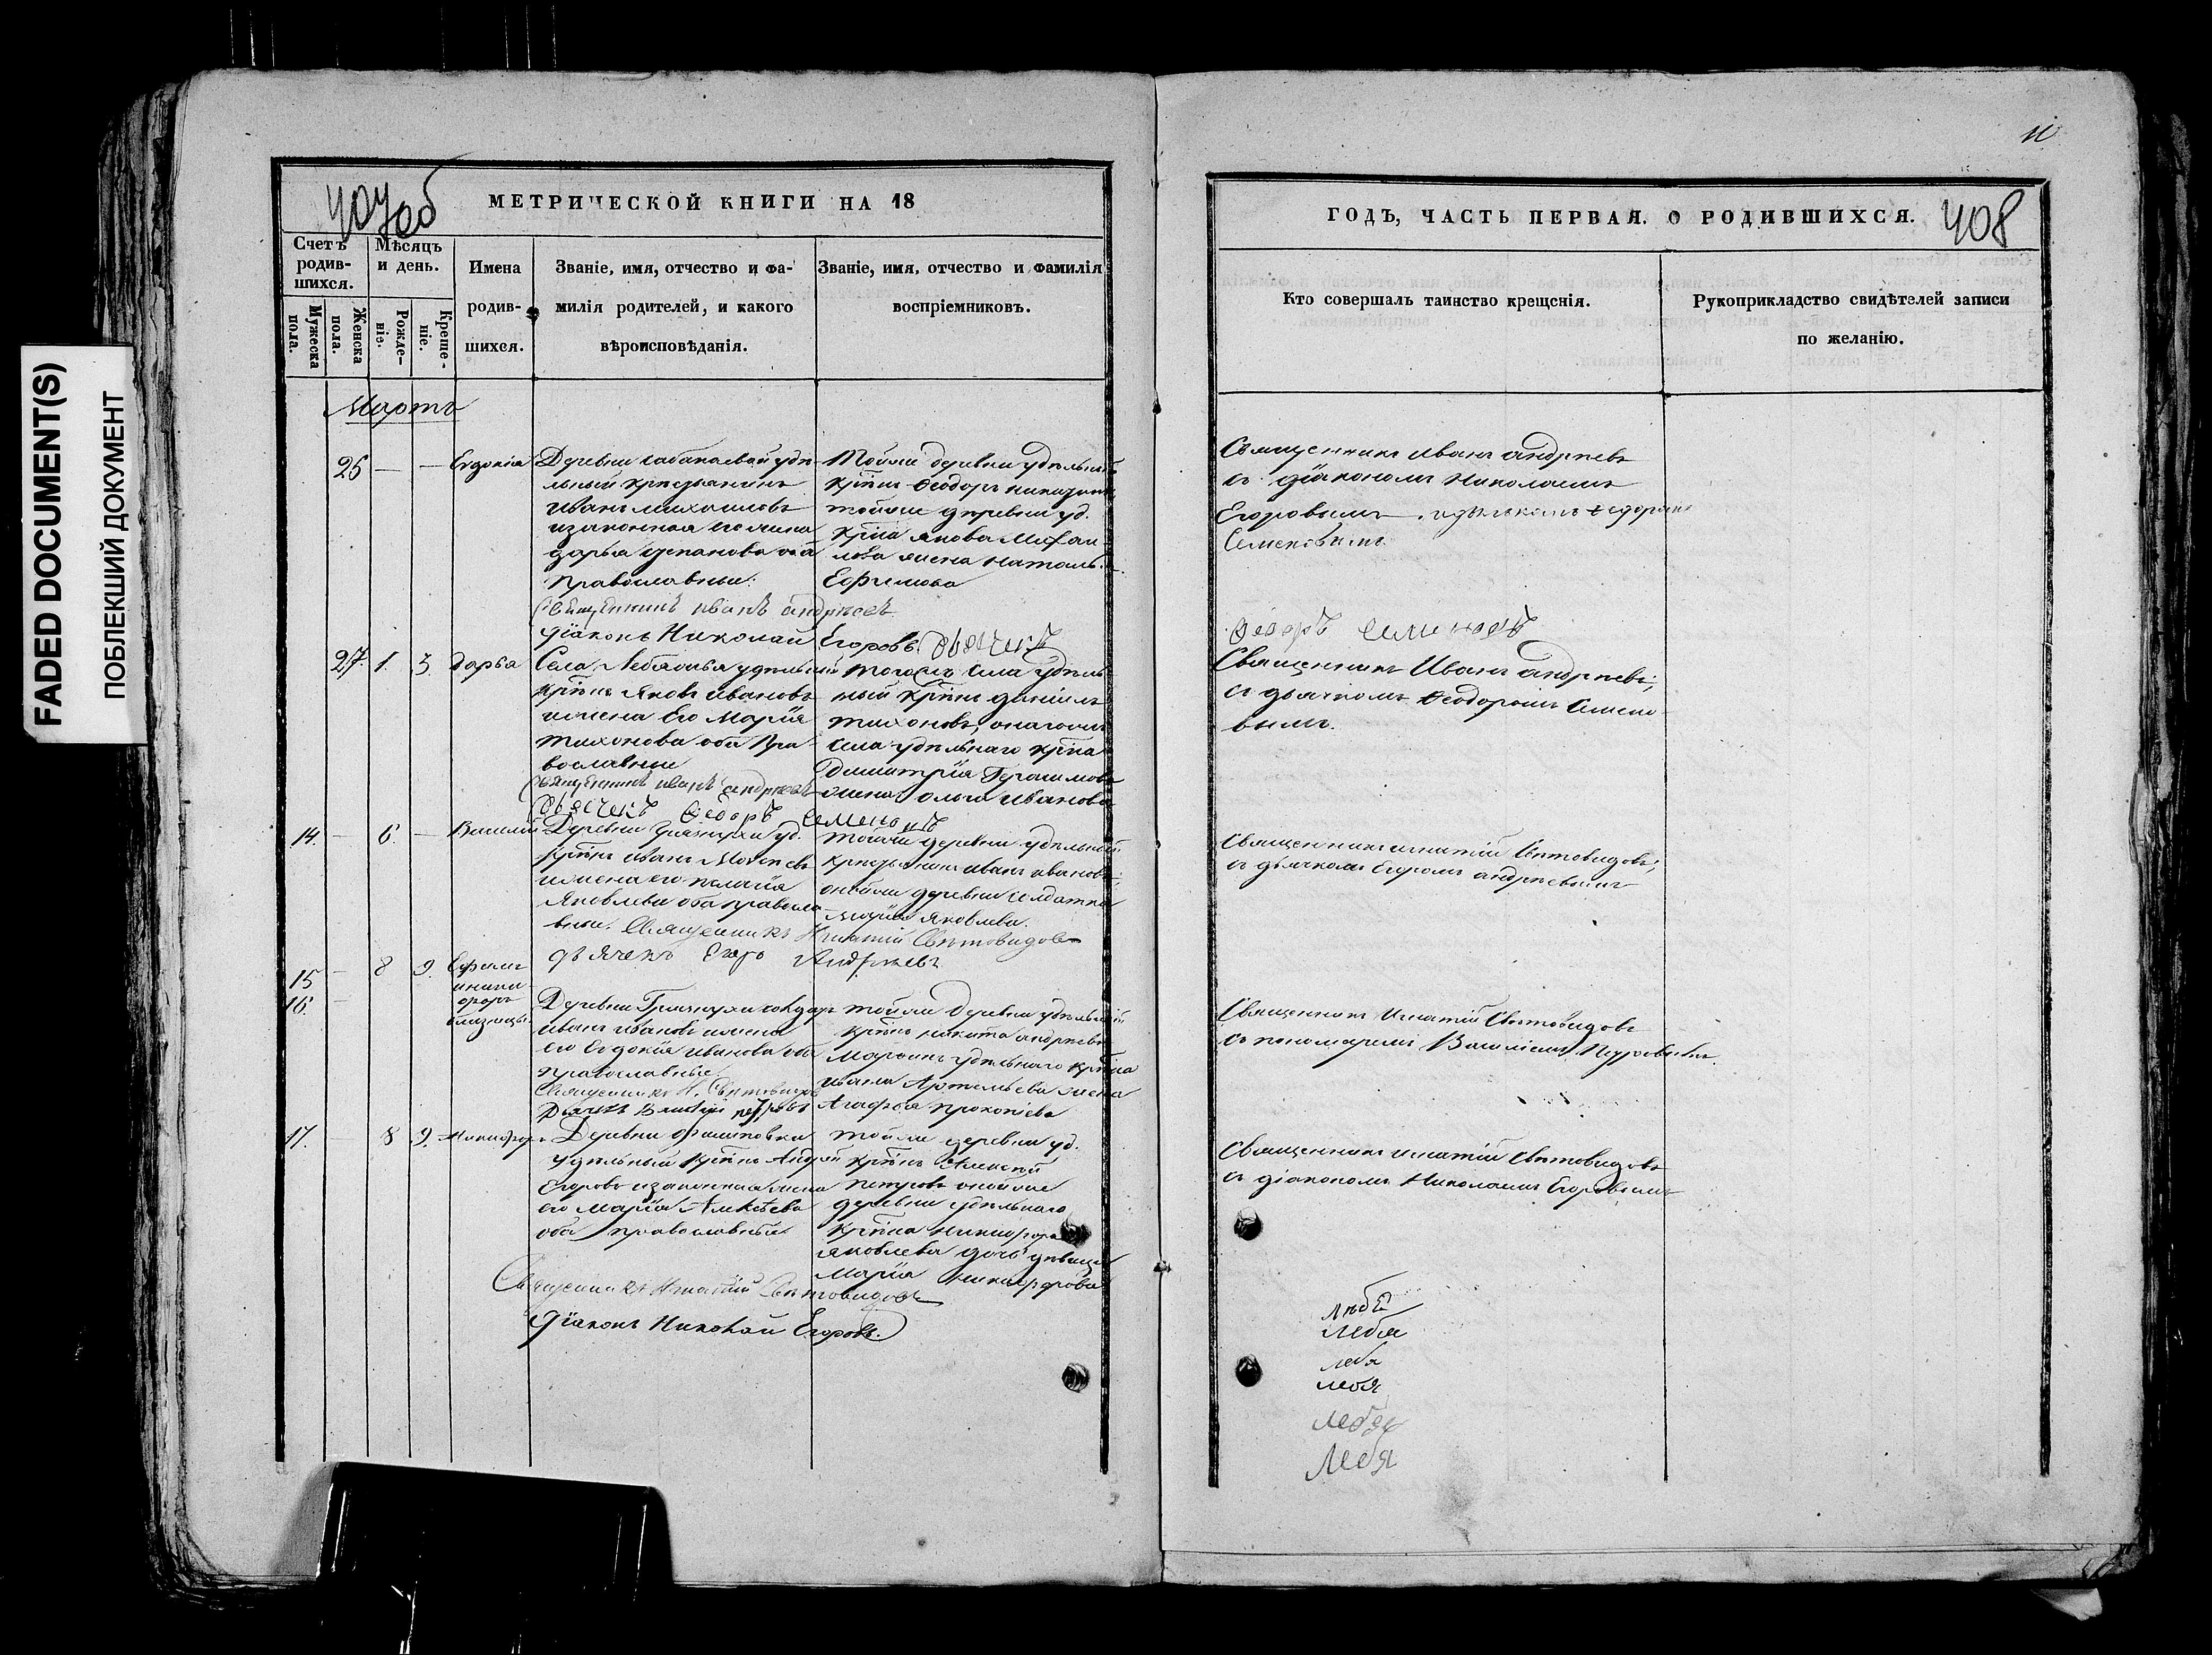 FADED DOCUMENT(S)
ПОБЛЕКШИЙ ДОКУМЕНТ
407 об
МЕТРИЧЕСКОЙ КНИГИ НА 18
Счетъ родив-шихся.
Мужеска пола.
Женска пола.
Мѣсяцъ и день.
Рожде-ніе.
Креще-ніе.
Имена
родив-
шихся.
Званіе, имя, отчество и фа-
милія родителей, и какого
вѣроисповѣданія.
Званіе, имя, отчество и фамилія
воспріемниковъ.
Мартъ
26 — — Евдокія
Деревни удѣ-
льный крестьянинъ
Иванъ Михаиловъ
изаконная его жена
дарья оба
Православныи.
Священникъ иванъ андреевъ
діаконъ Николай Егоровъ дьячекъ
Тойжи деревни удѣльный
крт҃нъ Ѳеодоръ
тойже деревни уд.
крт҃на Якова Михаи
лова жена Наталь
Ефимова
27. 1. 3. дарья
Села Лебяжья удѣльный
крт҃нъ Яковъ Ивановъ
ижена Его Марія
Тихонова оба Пра-
вославные
Священникъ иванъ андреевъ
дьячекъ Ѳедоръ Семеновъ
тогожъ села удѣль
ный крт҃нъ даніилъ
Тихоновъ, онагожъ
села удѣльнаго крт҃на
Димитрія Герасимова
жена ольга Иванова
14. — 6. — Василий
Деревни Грязнухи уд.
крт҃нъ Иванъ
ижена его пелагія
Яковлева оба правосла
вныи. Священникъ Игнатій Свѣтовидовъ
дьячекъ Егоръ Андреевъ
тойжи деревни удѣльный
крестьянинъ иванъ ивановъ;
онойже деревни солдатка
марія яковлева.
15 — 8 9. Ефимъ
16. — иники
форъ
близнецы.
Деревни Грязнухи
иванъ ивановъ ижена
его Евдокія иванова оба
православные
Священникъ И. Свѣтовидовъ
Василий петровъ
тойже деревни удѣльный
крт҃нъ никита андреевъ
удѣльнаго крт҃на
ивана Артемьева жена
Агафья прокопіева
17. — 8 9. Никифоръ
Деревни Филиповки
удѣльный крт҃нъ Андрей
Егоровъ изаконная жена
его Марія Алексѣева
оба православные
Священникъ Игнатій Свѣтовидовъ
Діаконъ Николай Егоровъ.
тойже деревни уд.
крт҃нъ Алексѣй
Петровъ онойже
деревни удѣльнаго
крт҃на никифора
яковлева дочь дѣвица
Марія никифорова
11
ГОДЪ, ЧАСТЬ ПЕРВАЯ. О РОДИВШИХСЯ.
408
Кто совершалъ таинство крещенія.
Рукоприкладство свидѣтелей записи
по желанію.
Священникъ иванъ андреевъ
съ діакономъ николаемъ
Егоровымъ идьячкомъ Ѳедоромъ
Семеновымъ
Ѳедоръ семеновъ
Священникъ Иванъ андреевъ;
съ дьячкомъ Ѳеодоромъ Семено
вымъ.
Священникъ игнатій Свѣтовидовъ;
съ дьячкомъ Егоромъ андреевымъ
Священникъ Игнатій Свѣтовидовъ
съ пономаремъ Василіемъ Петровымъ.
Священникъ игнатій Свѣтовидовъ
съ діакономъ Николаемъ Егоровымъ
Лебя
лебя
лебя
Лебя